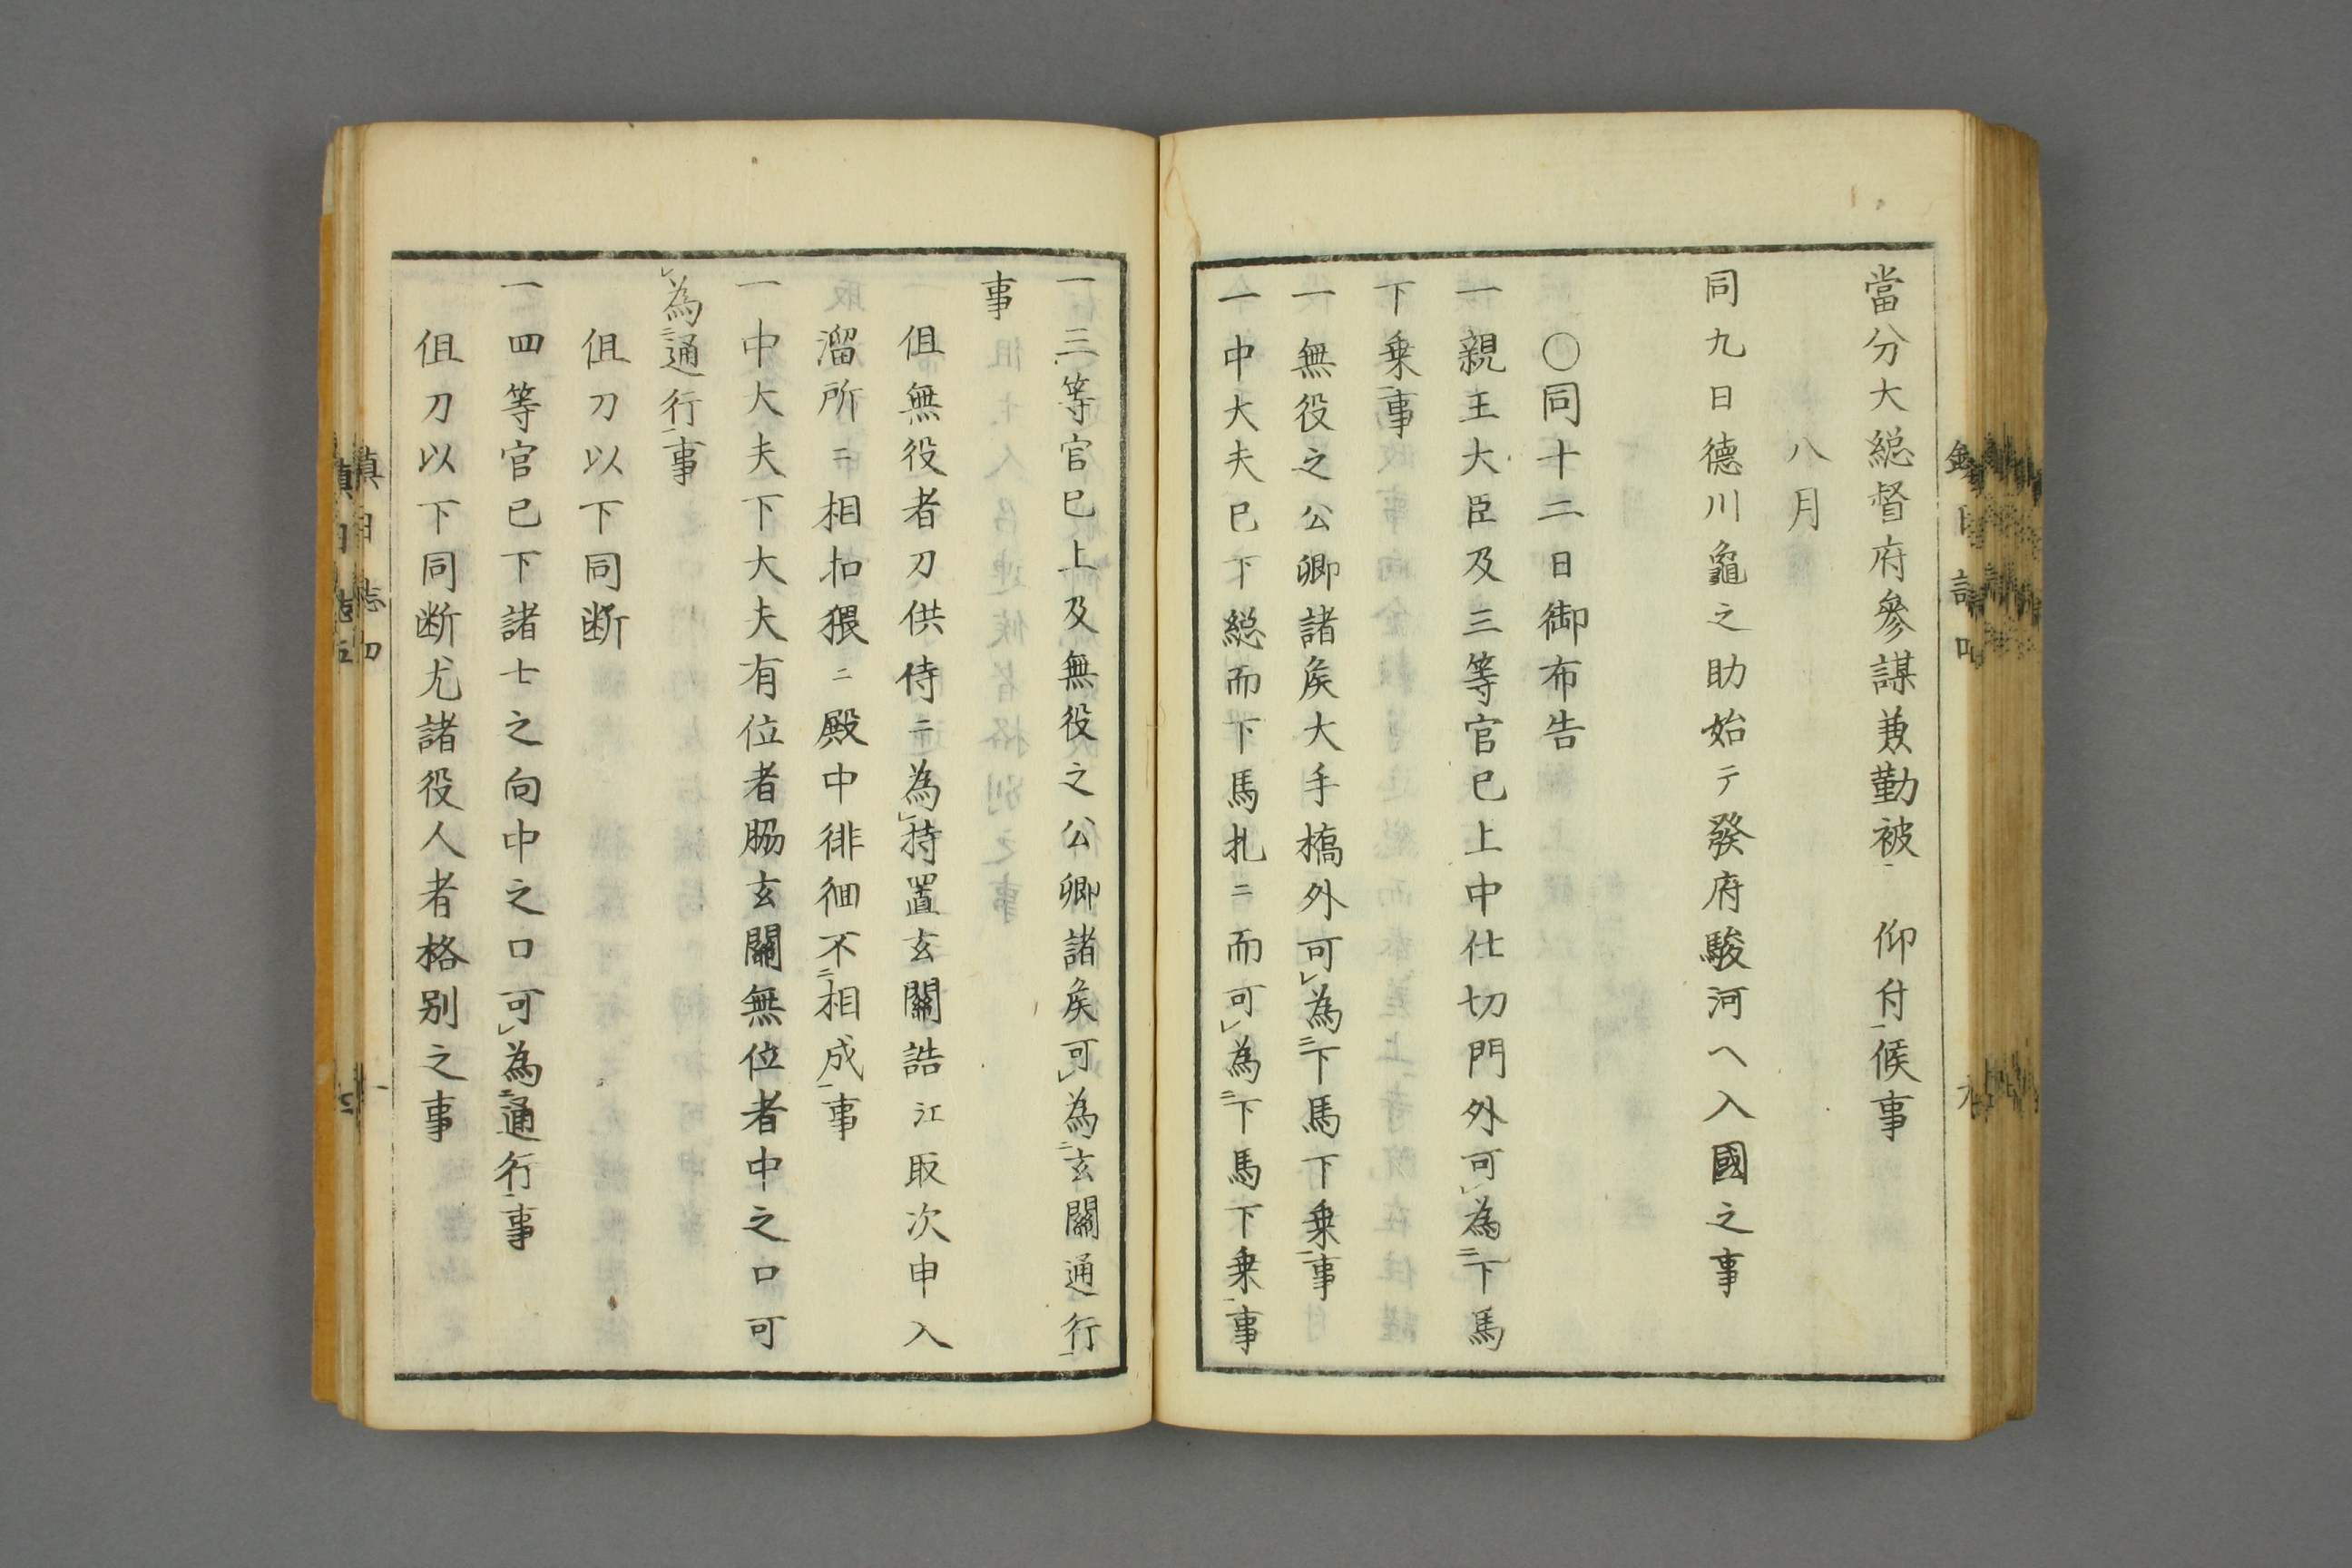 當分大緫督府參謀兼勤被　仰付候事
八月
同九日德川龜之助始テ發府駿河ヘ入國之事
〇同十二日御布告
一親王大臣及三等官已上中仕切門外可レ為二下馬
下乗一事
一無役之公卿諸矦大手橋外可レ為二下馬下乗一事
一中大夫已下緫而下馬札ニ而可レ為二下馬下乗一事
一三等官已上及無役之公卿諸矦可レ為二玄關通行一
事
伹無役者刀供侍ニ為レ持置玄關誥江取次申入
溜所ニ相扣猥ニ殿中徘徊不二相成一事
一中大夫下大夫有位者脇玄關無位者中之口可
レ為二通行一事
伹刀以下同断
一四等官已下諸士之向中之口可レ為二通行一事
伹刀以下同断尤諸役人者格别之事